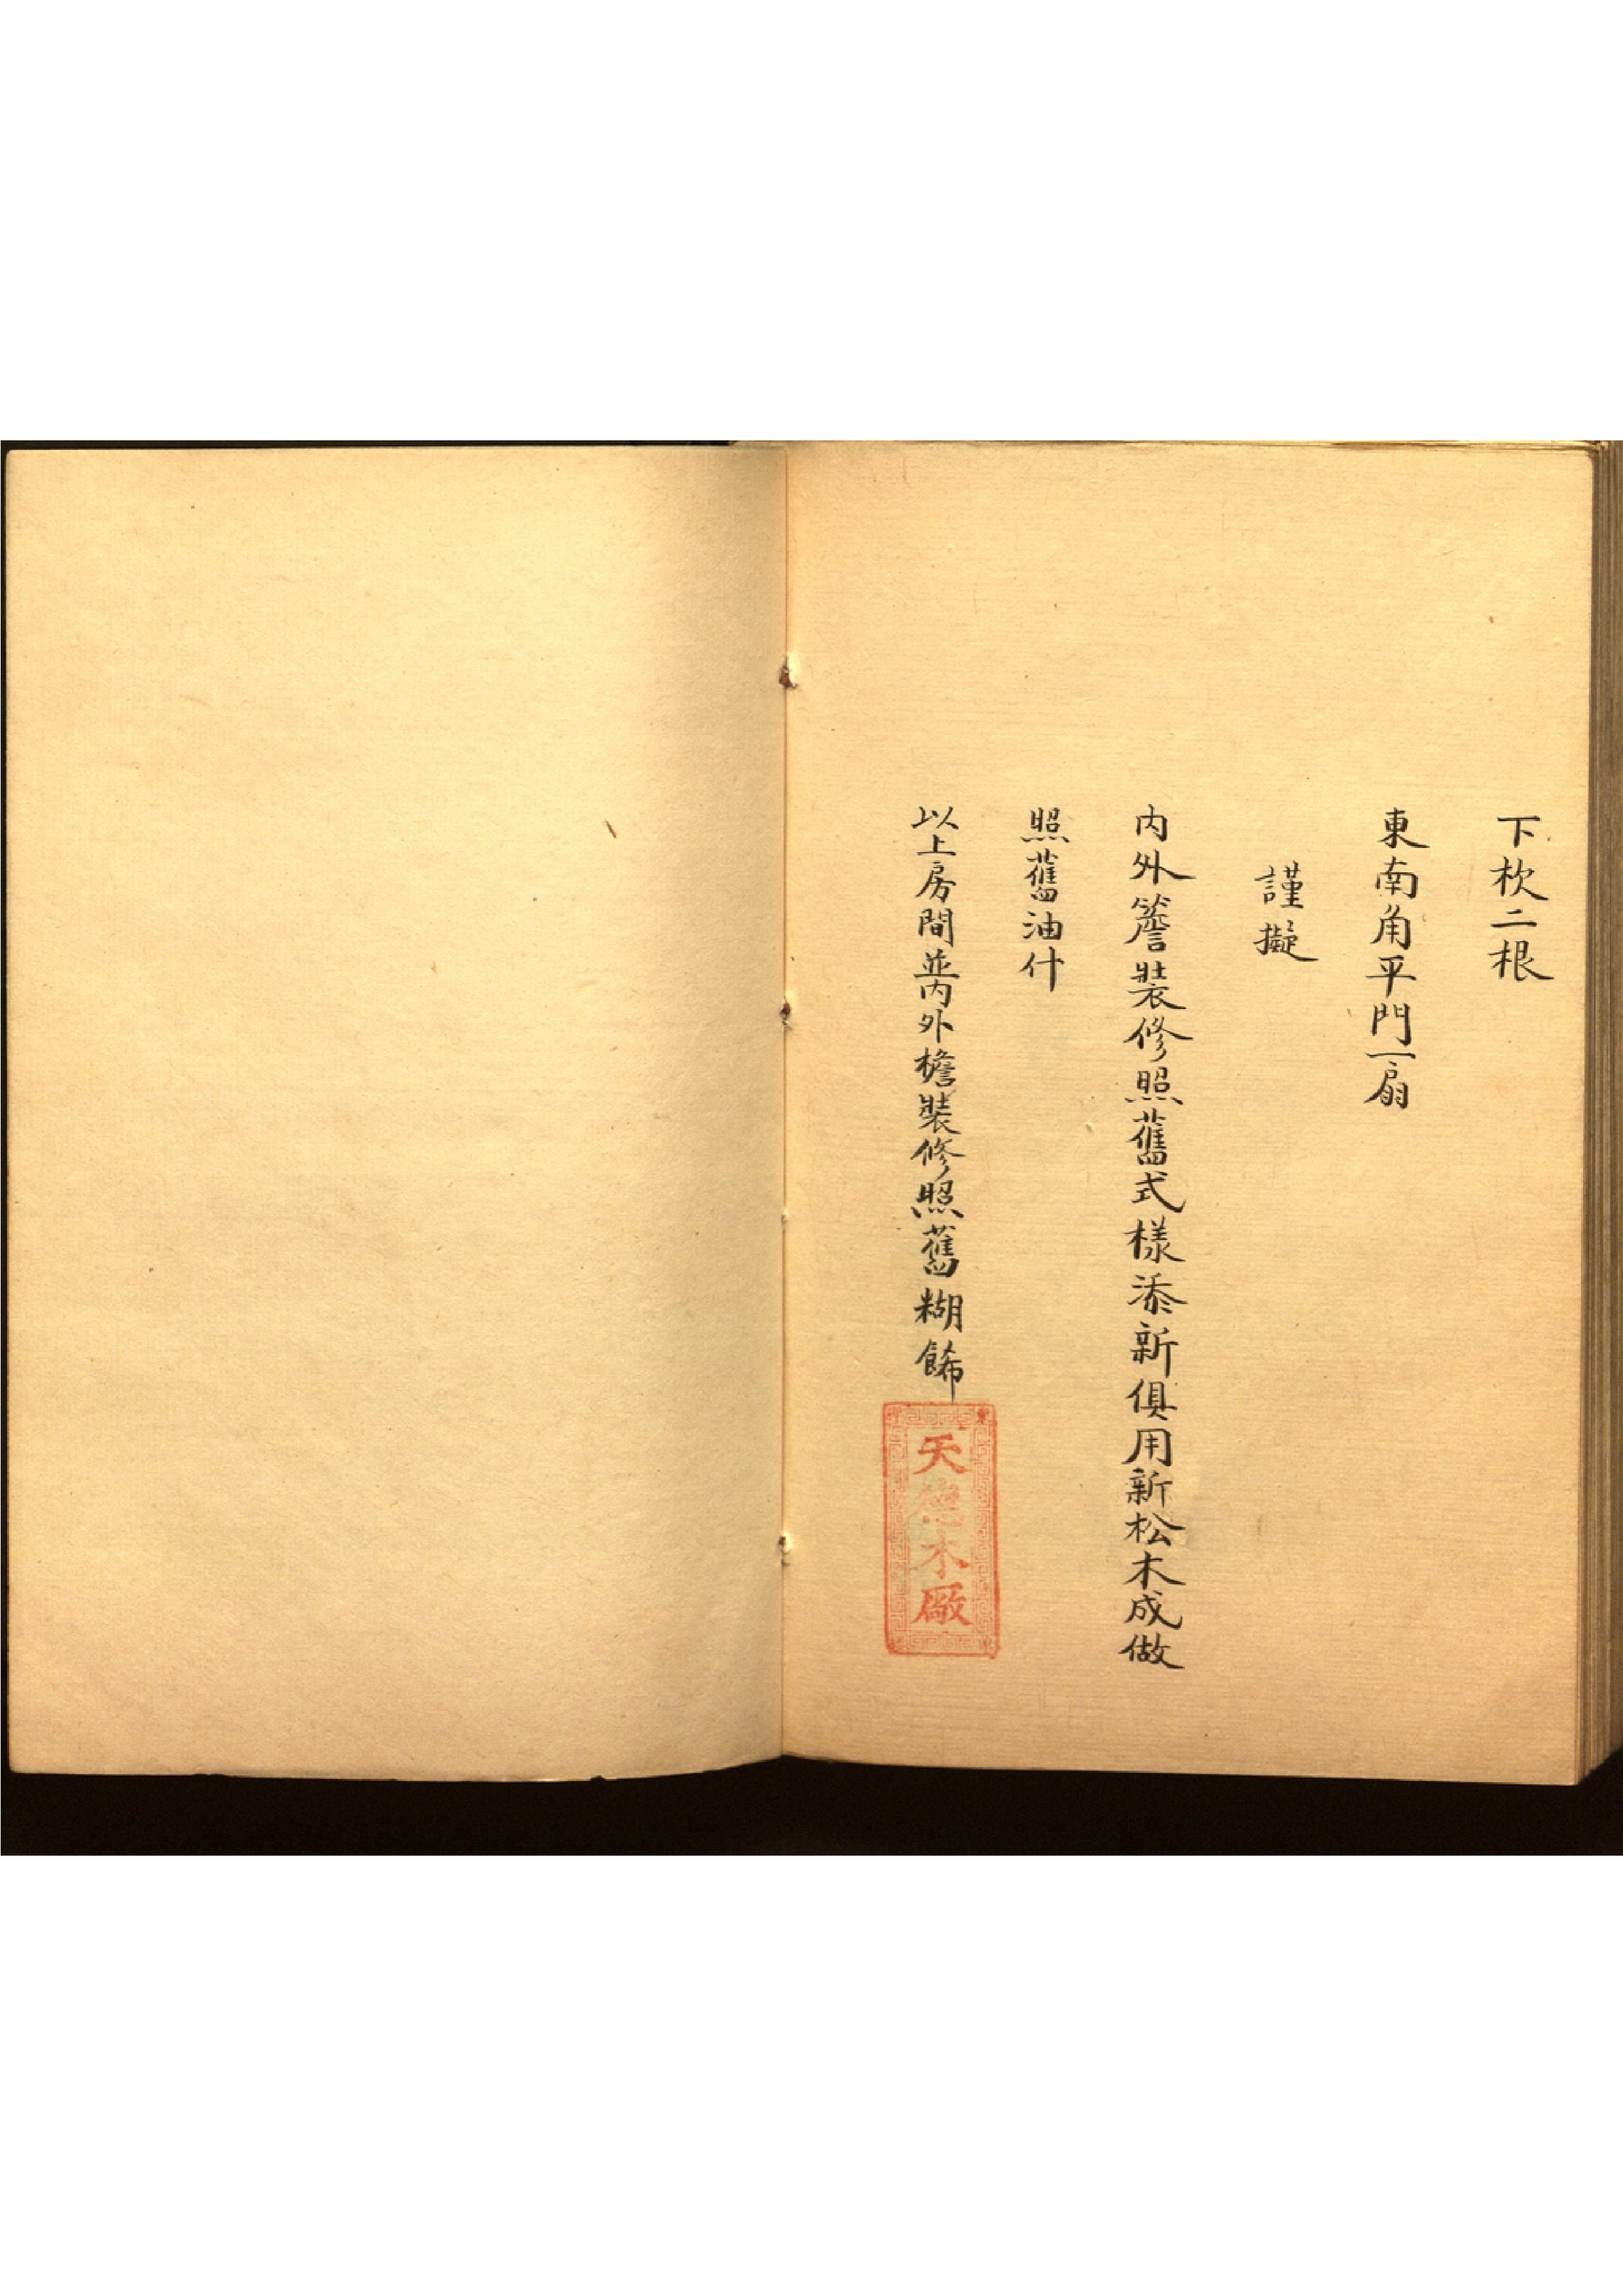 下枕二根
東南角平門一扇
謹擬
内外簷裝修照舊式樣添新俱用新松木成做
照舊油什
以上房間並内外檐裝修照舊糊餙
天德木廠